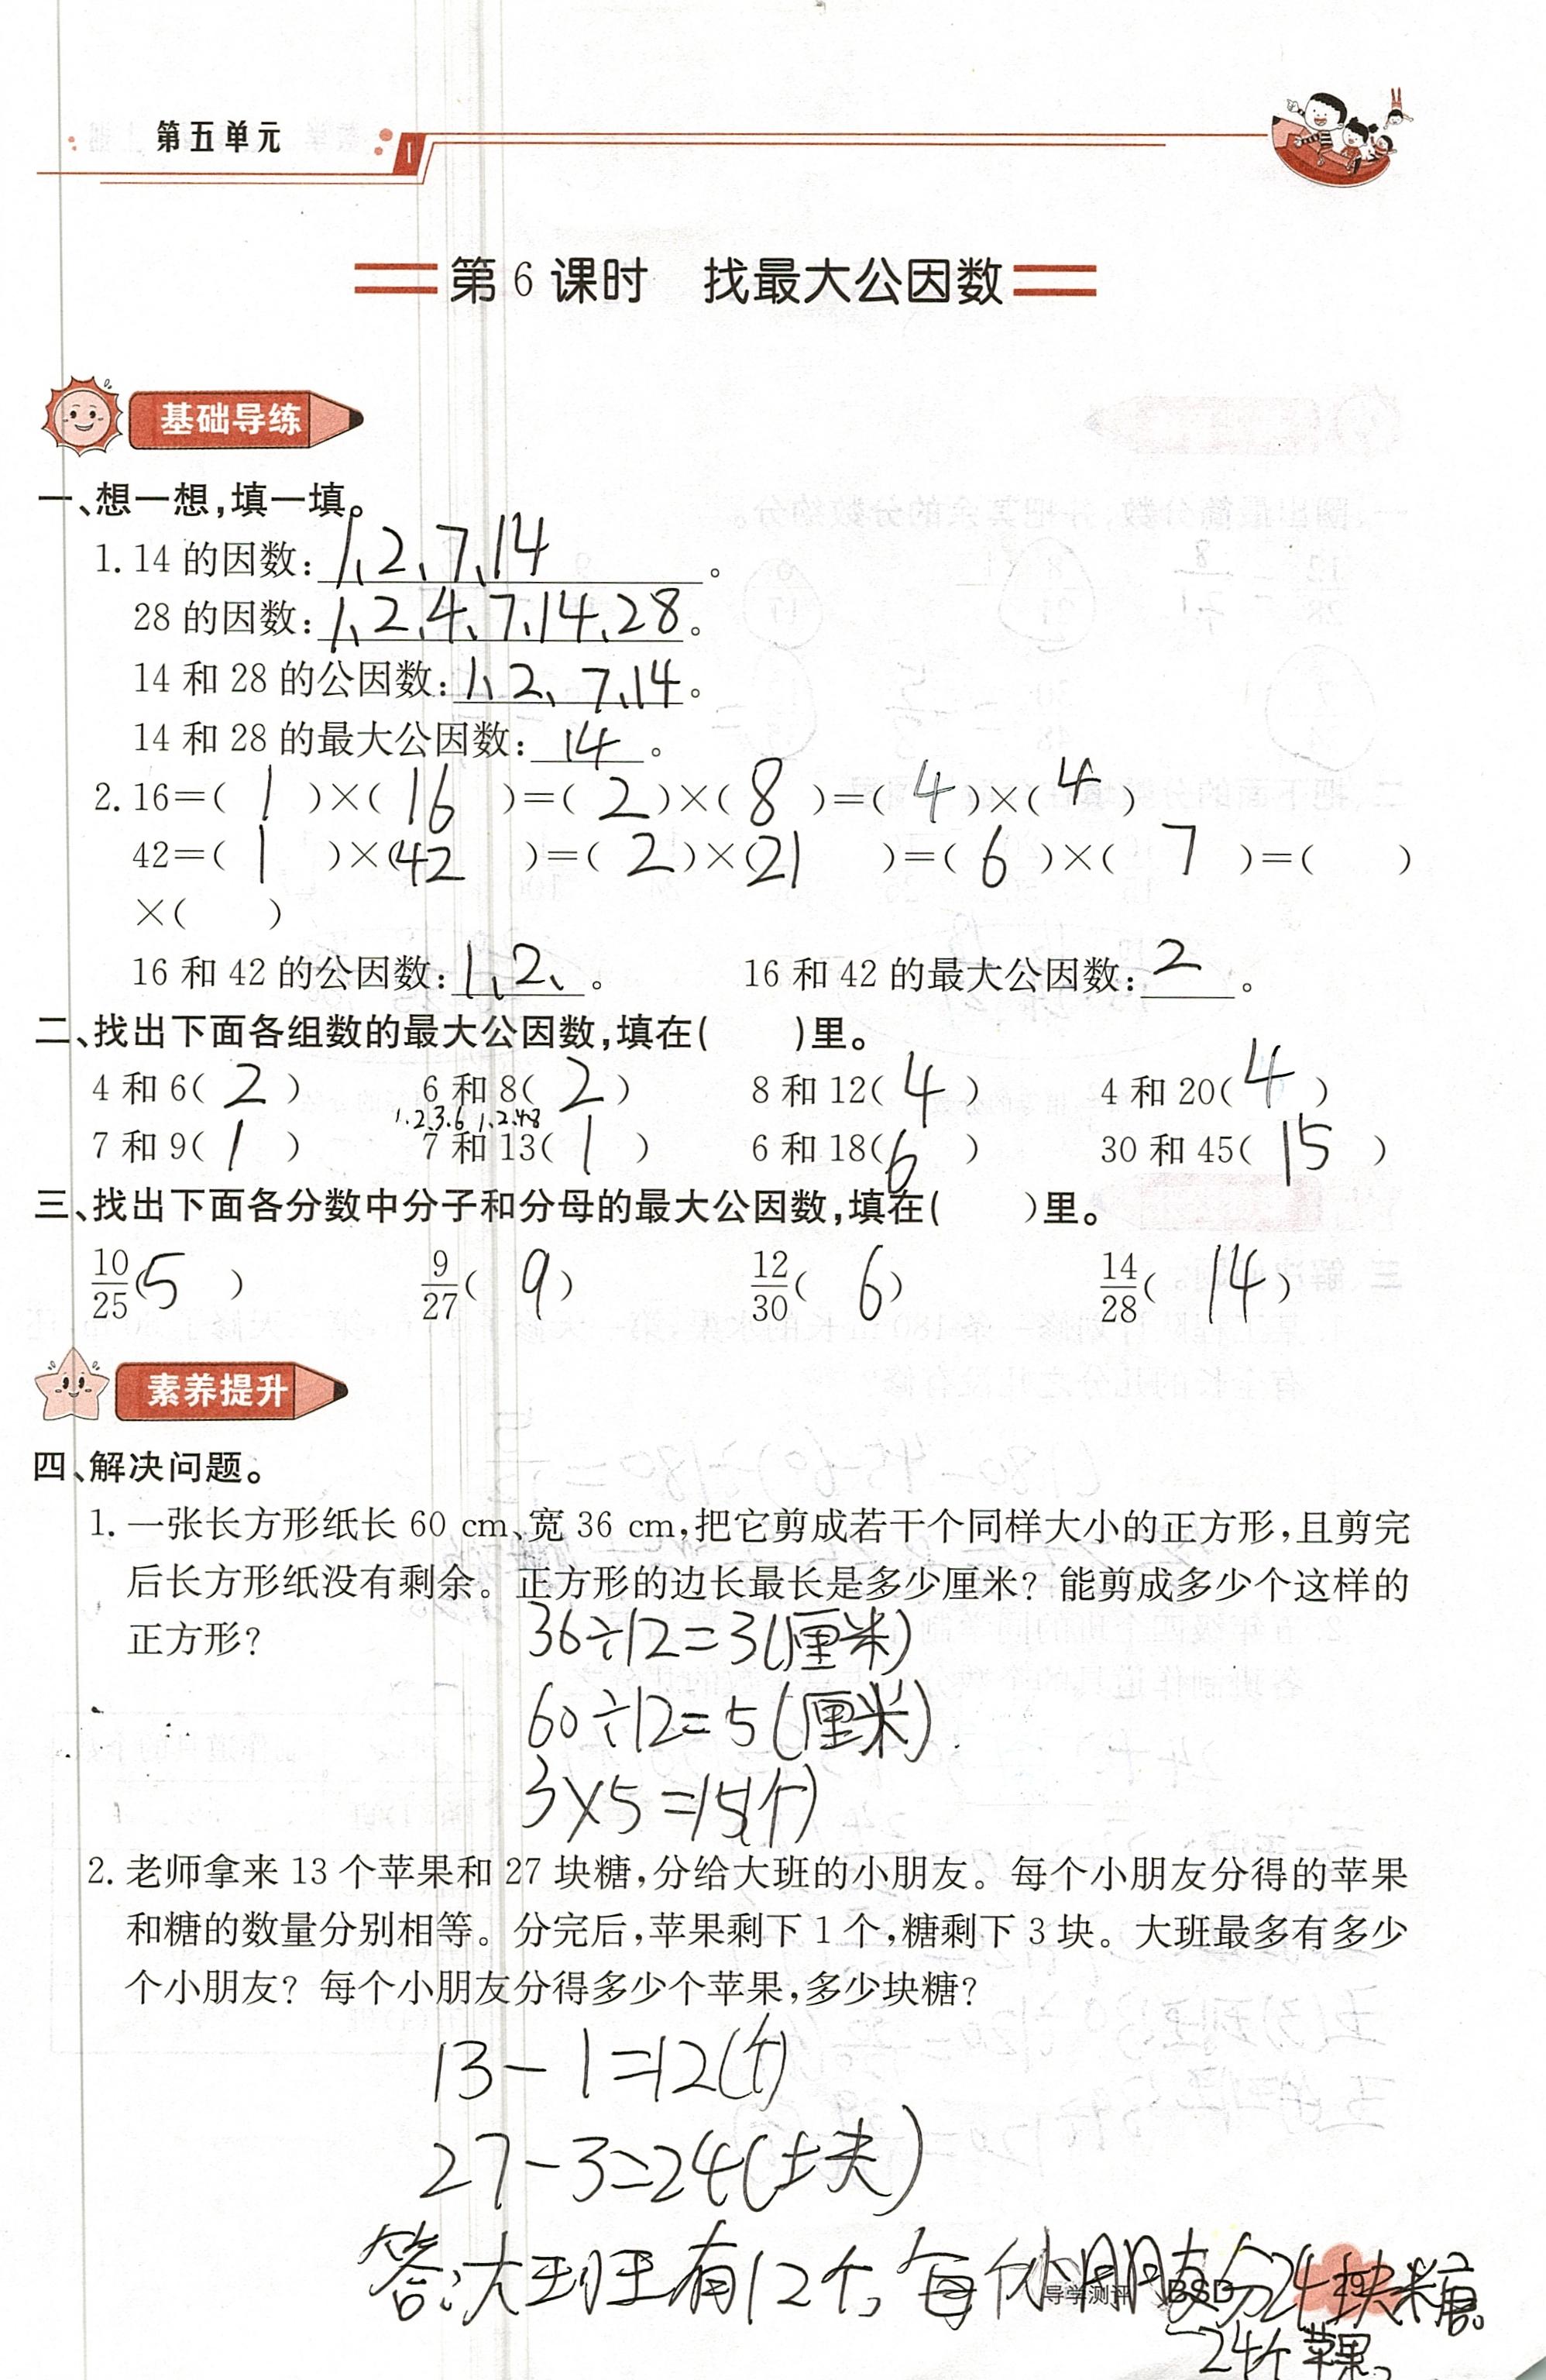 第五单元
第 6 课时 找最大公因数
基础导练
一、想一想,填一填。
1. 14 的因数: 1、2、7、14 。
28 的因数: 1、2、4、7、14、28 。
14 和 28 的公因数: 1、2、7、14 。
14 和 28 的最大公因数: 14 。
2. 16=( 1 )×( 16 )=( 2 )×( 8 )=( 4 )×( 4 )
42=( 1 )×( 42 )=( 2 )×( 21 )=( 6 )×( 7 )=( )
×( )
16 和 42 的公因数: 1、2、 。 16 和 42 的最大公因数: 2 。
二、找出下面各组数的最大公因数,填在( )里。
4 和 6( 2 ) 6 和 8( 2 ) 8 和 12( 4 ) 4 和 20( 4 )
1.2.3.6 1.2.4.8
7 和 9( 1 ) 7 和 13( 1 ) 6 和 18( 6 ) 30 和 45( 15 )
三、找出下面各分数中分子和分母的最大公因数,填在( )里。
10/25( 5 ) 9/27( 9 ) 12/30( 6 ) 14/28( 14 )
素养提升
四、解决问题。
1. 一张长方形纸长 60 cm、宽 36 cm,把它剪成若干个同样大小的正方形,且剪完
后长方形纸没有剩余。正方形的边长最长是多少厘米? 能剪成多少个这样的
正方形?
36÷12=3(厘米)
60÷12=5(厘米)
3×5=15(个)
2. 老师拿来 13 个苹果和 27 块糖,分给大班的小朋友。每个小朋友分得的苹果
和糖的数量分别相等。分完后,苹果剩下 1 个,糖剩下 3 块。大班最多有多少
个小朋友? 每个小朋友分得多少个苹果,多少块糖?
13-1=12(个)
27-3=24(块)
答:大班有12个,每个小朋友分24块糖。
24个苹果。
导学测评 BSD